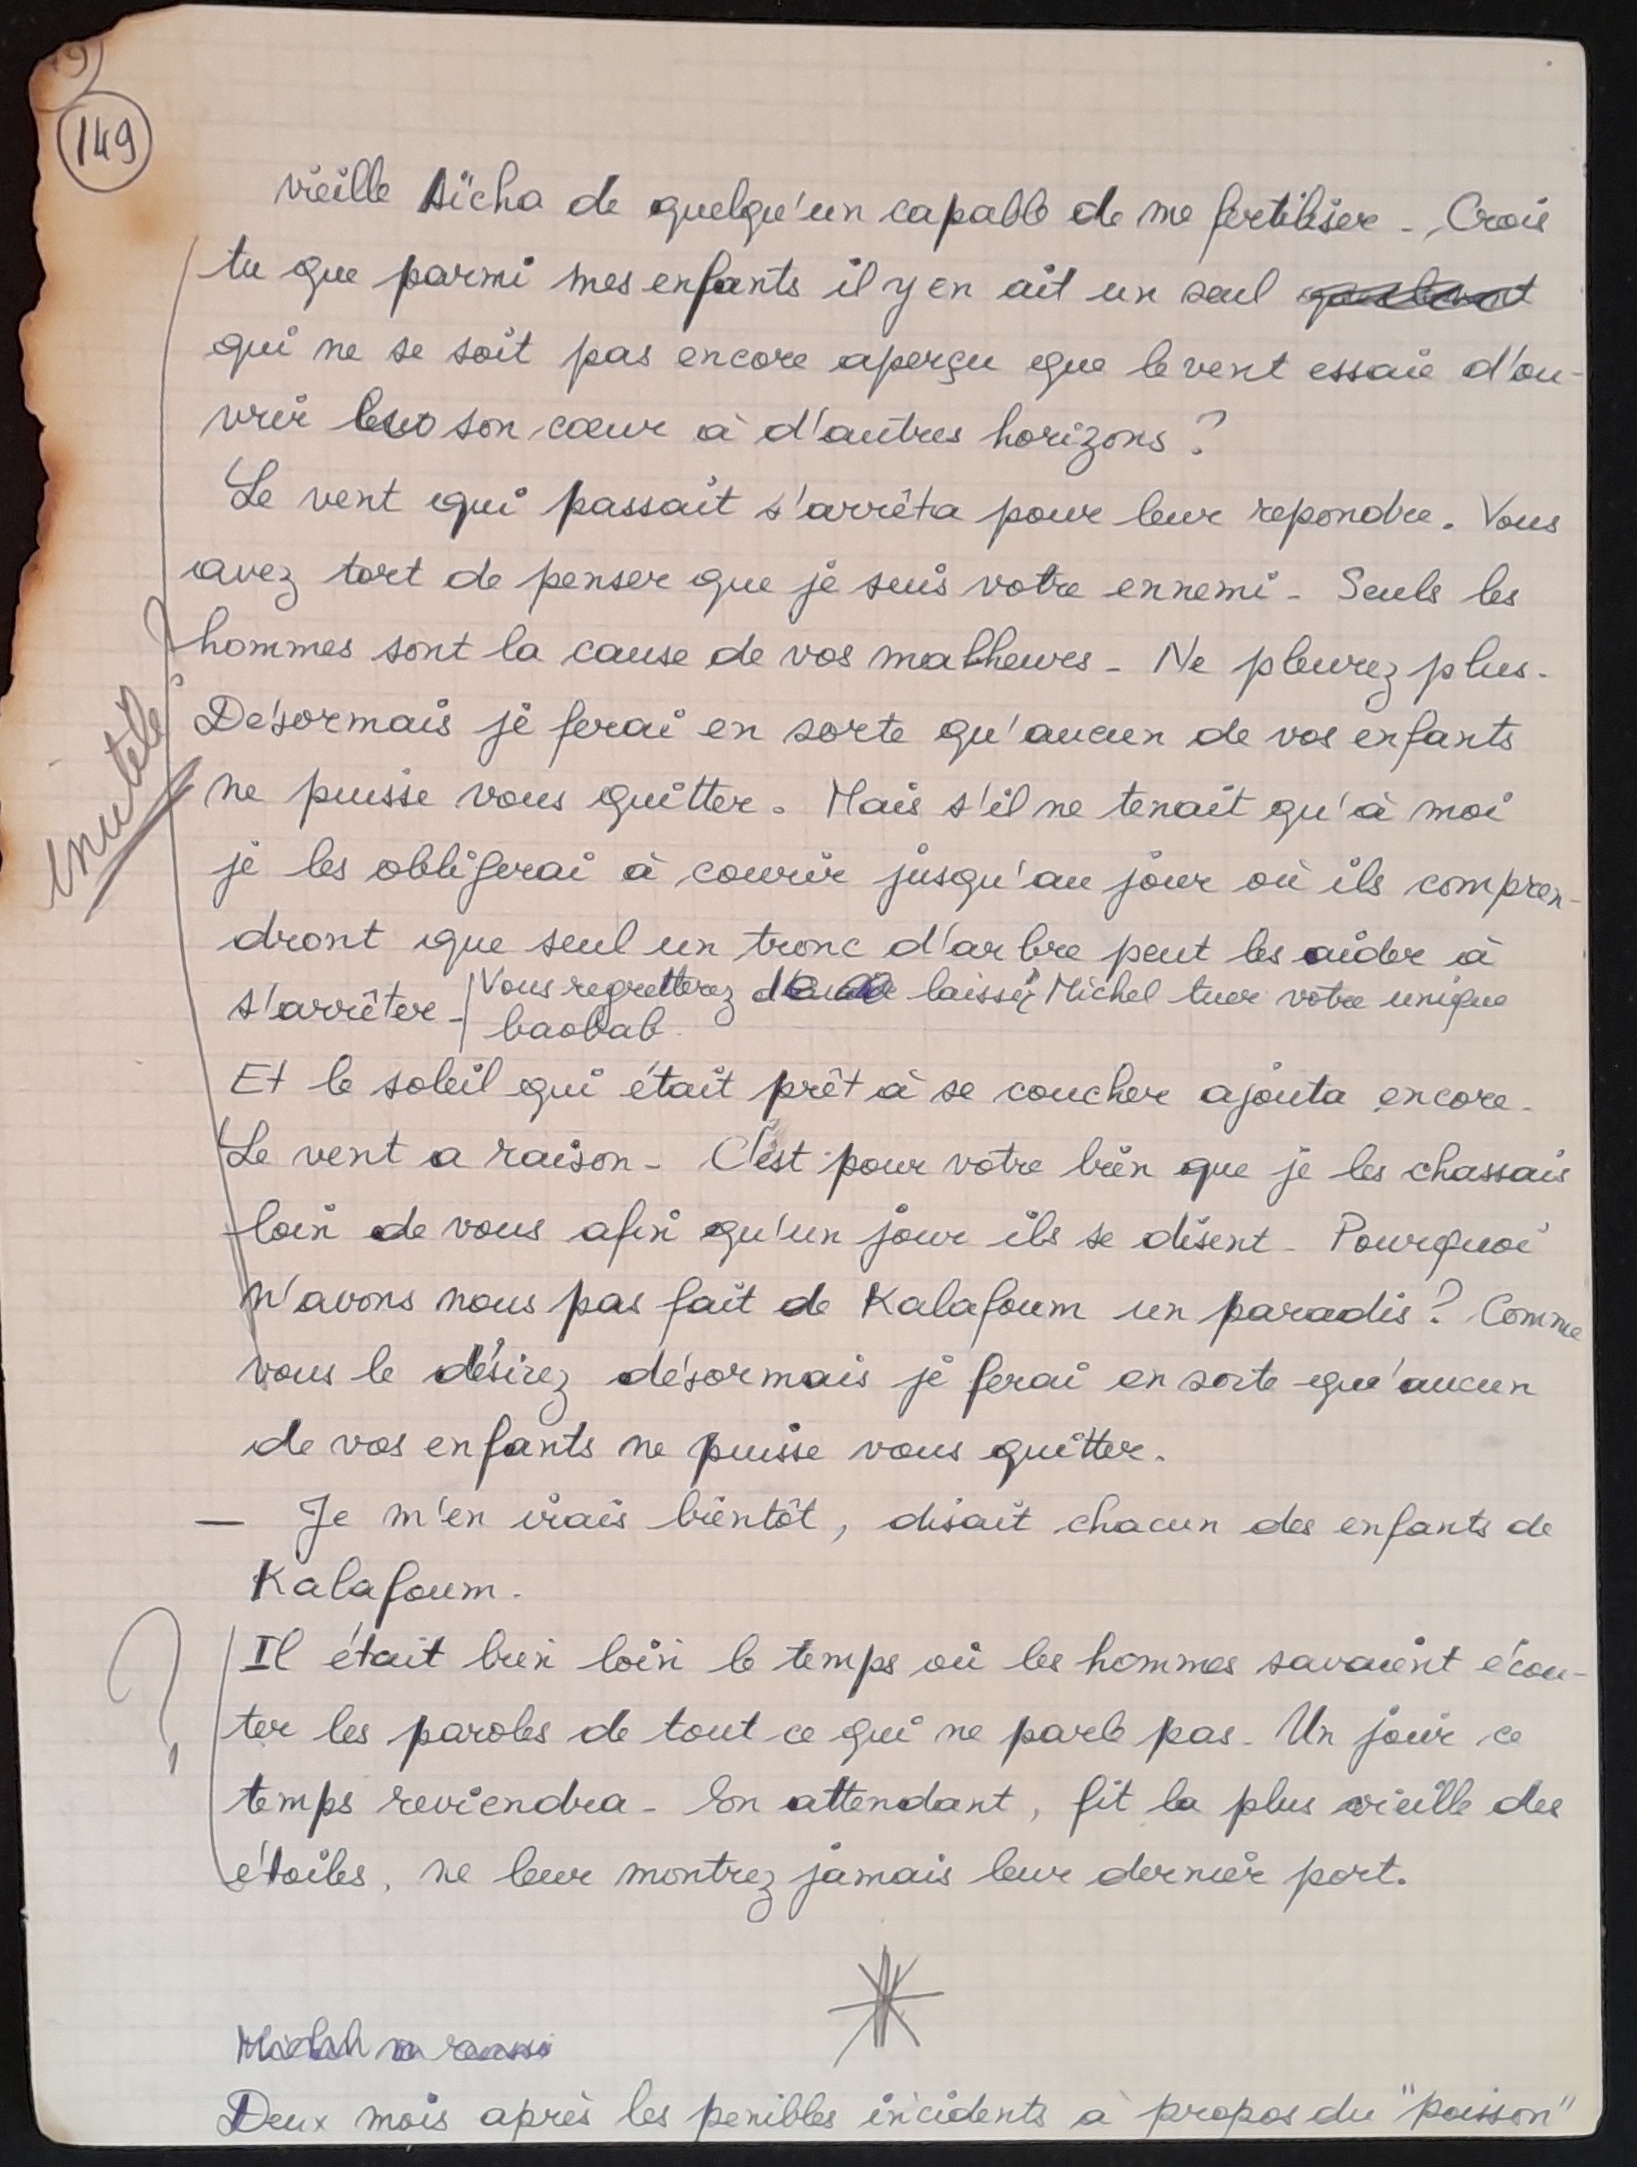 149
vieille Aïcha de quelqu'un capable de me fertiliser -. Crois
tu que parmi mes enfants il y en ait un seul
qui ne se soit pas encore aperçu que le vent essaie d'ou-
vrir son cœur à d'autres horizons ?
Le vent qui passait s'arrêta pour leur repondre. Vous
avez tort de penser que je suis votre ennemi - Seuls les
hommes sont la cause de vos malheures - Ne pleurez plus -
inutile ?
Désormais je ferai en sorte qu'aucun de vos enfants
ne puisse vous quitter. Mais s'il ne tenait qu'à moi
je les obligerai à courir jusqu'au jour où ils compren-
dront que seul un tronc d'arbre peut les aider à
s'arrêter - Vous regretterez laissé Michel tuer votre unique
baobab.
Et le soleil qui était prêt à se coucher ajouta encore -
Le vent a raison - C'est pour votre bien que je les chassais
loin de vous afin qu'un jour ils se disent - Pourquoi
n'avons nous pas fait de Kalafoum un paradis ? Comme
vous le désirez désormais je ferai en sorte que'aucun
de vos enfants ne puisse vous quitter.
— Je m'en irais bientôt, disait chacun des enfants de
Kalafoum -
? Il était bien loin le temps où les hommes savaient écou-
ter les paroles de tout ce qui ne parle pas - Un jour ce
temps reviendra - En attendant, fit la plus vieille des
étoiles, ne leur montrez jamais leur dernier port.
Deux mois après les penibles incidents à propos du "poisson"